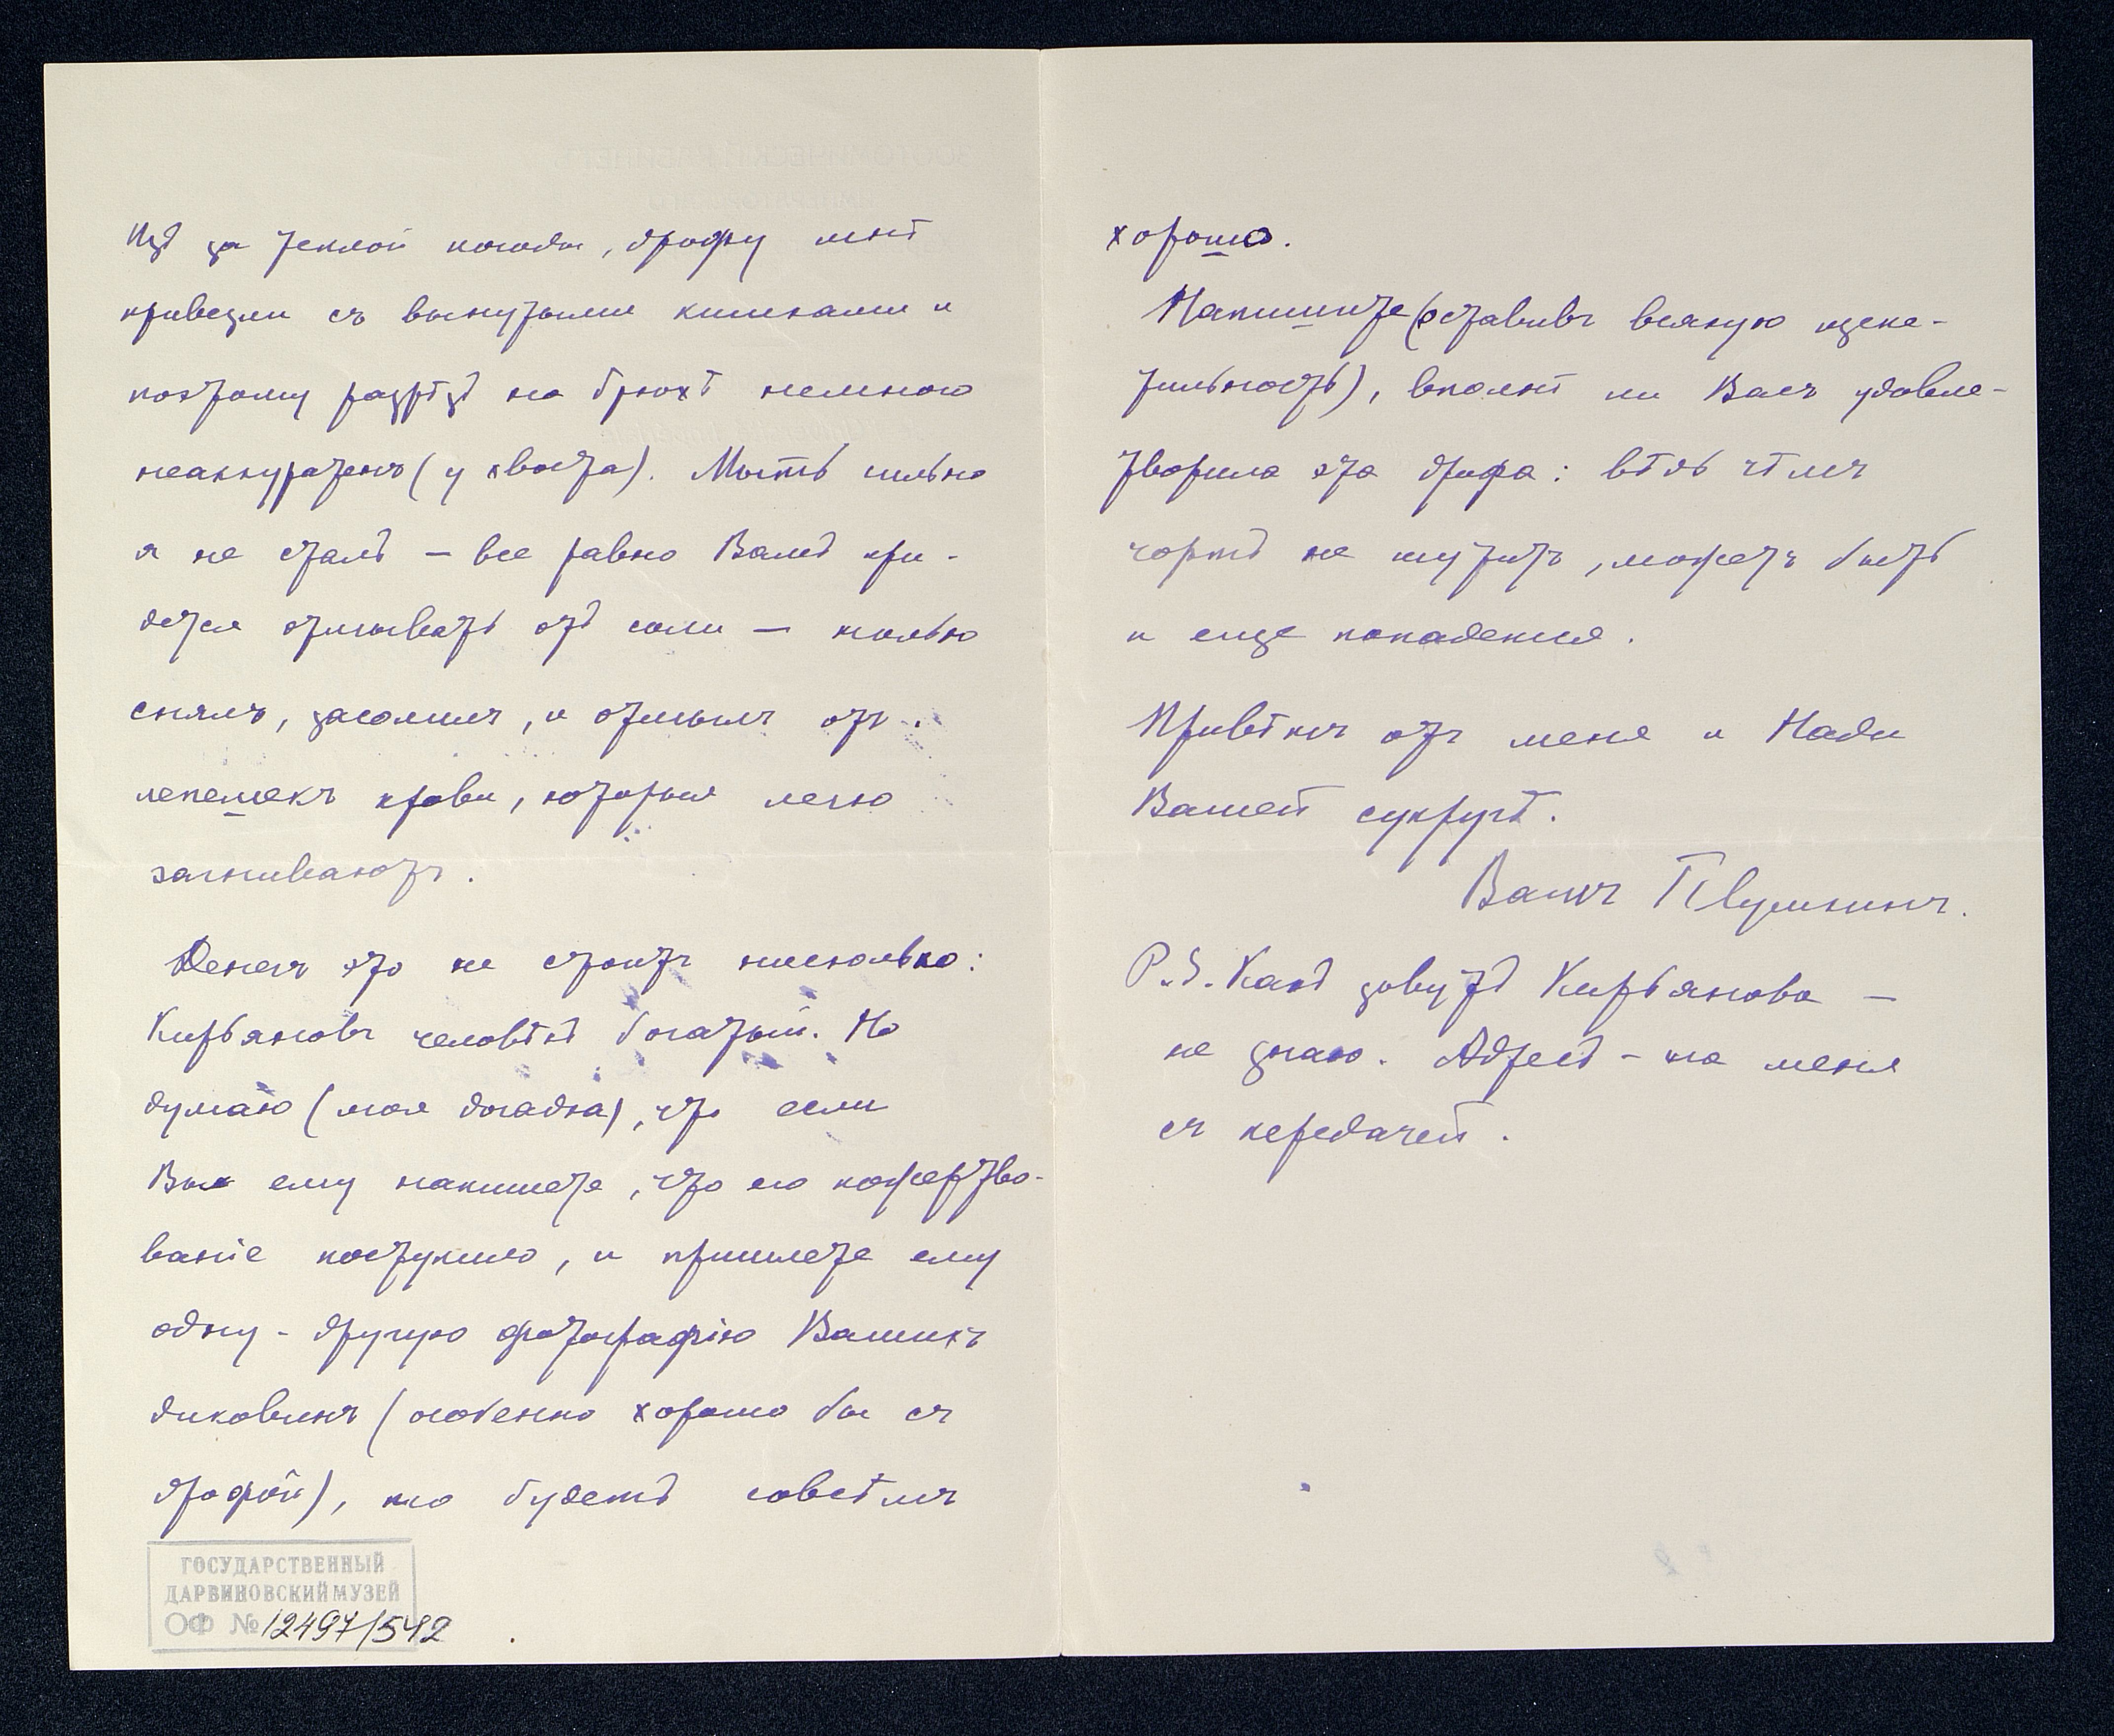 Изъ за теплой погоды, дрофу мнѣ
привезли съ вынутыми кишками и
поэтому разрѣзъ на брюхѣ немного
неаккуратенъ (у хвоста). Мыть сильно
я не сталъ – все равно Вамъ при-
дется отмывать отъ соли – только
снялъ, засолилъ, и отмылъ отъ
лепешекъ крови, которыя легко
загниваютъ.
Денегъ это не стоитъ нисколько:
Кирьяновъ человѣкъ богатый. Но
думаю (моя догадка), что если
Вы ему напишете, что его пожертво-
ваніе поступило, и пришлете ему
одну-другую фотографію Вашихъ
диковинъ (особенно хорошо бы съ
дрофой), то будетъ совсѣмъ
ГОСУДАРСТВЕННЫЙ
ДАРВИНОВСКИЙ МУЗЕЙ
ОФ № 12497/542
хорошо.
Напишите (оставивъ всякую щепе-
тильность), вполнѣ ли Васъ удовле-
творила эта дрофа: вѣдь чѣмъ
чортъ не шутитъ, можетъ быть
и еще попадется.
Привѣтъ отъ меня и Нади
Вашей супругѣ.
Вашъ
P.S. Какъ зовутъ Кирьянова –
не знаю. Адресъ – на меня
съ передачей.